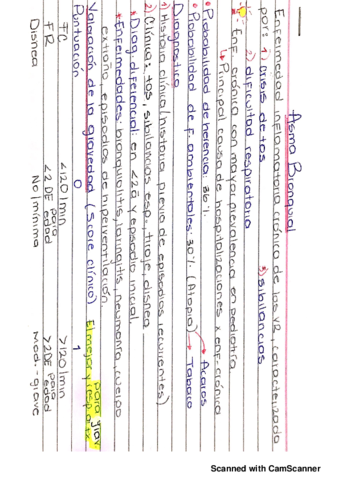 Asma Bronquial
Enfermedad inflamatoria crónica de las VR, caracterizada
por: 1) crisis de tos 3) sibilancias
2) dificultad respiratoria
Enf. crónica con mayor prevalencia en pediatría
↳ Principal causa de hospitalizaciones x enf. crónica
Probabilidad de herencia: 36%. → Acaros
Probabilidad de F. ambientales: 30%. (Atopia) → Tabaco
Diagnostico
1) Historia clínica (historia previa de episodios recurrentes)
2) Clínica: tos, sibilancias esp., tiraje, disnea
* Diag. diferencial: en <2a y episodio inicial.
* Enfermedades: bronquiolitis, laringitis, neumonía, cuerpo
extraño, episodios de hiperventilación. para grav
Valoración de la gravedad (Score clínico) El mejor
Puntuación 0 1
FC <120/min >120/min
FR <2 DE para edad >2 DE para edad
Disnea No/mínima Mod.-grave
Scanned with CamScanner